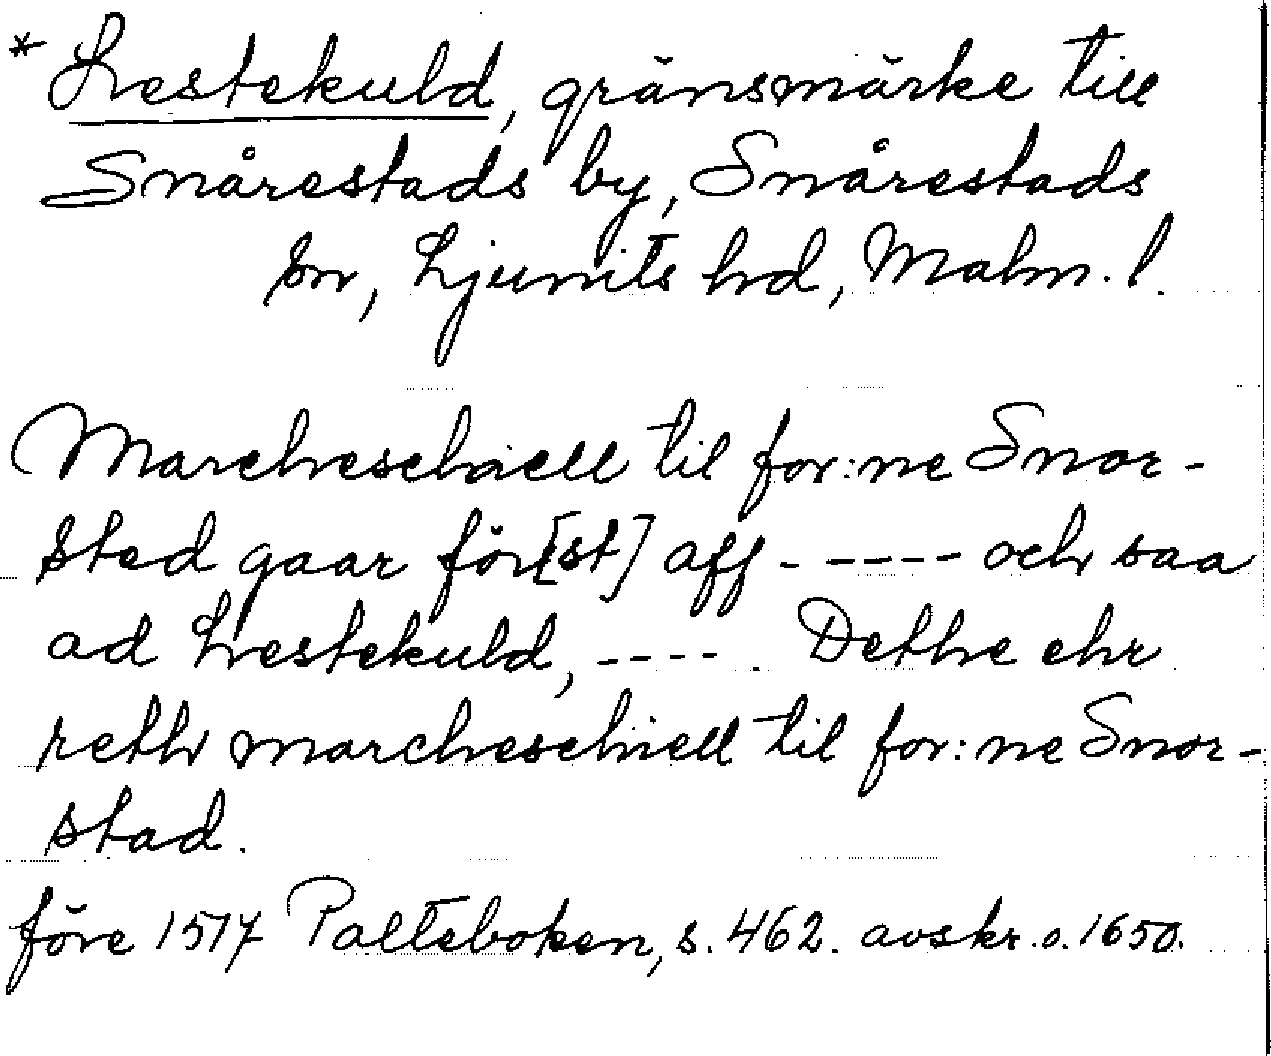 * Lrestekuld, gränsmärke till
Snårestads by, Snårestads
sn, Ljunits hd, Malm. l.
Marcheschiell til for:ne Snor-
sted gaar för[st] aff - ---- och saa
ad Lrestekuld, ---- . Dethe ehr
reth marcheschiell til for:ne Snor-
stad.
före 1517 Palteboken, s. 462. avskr. o. 1650.